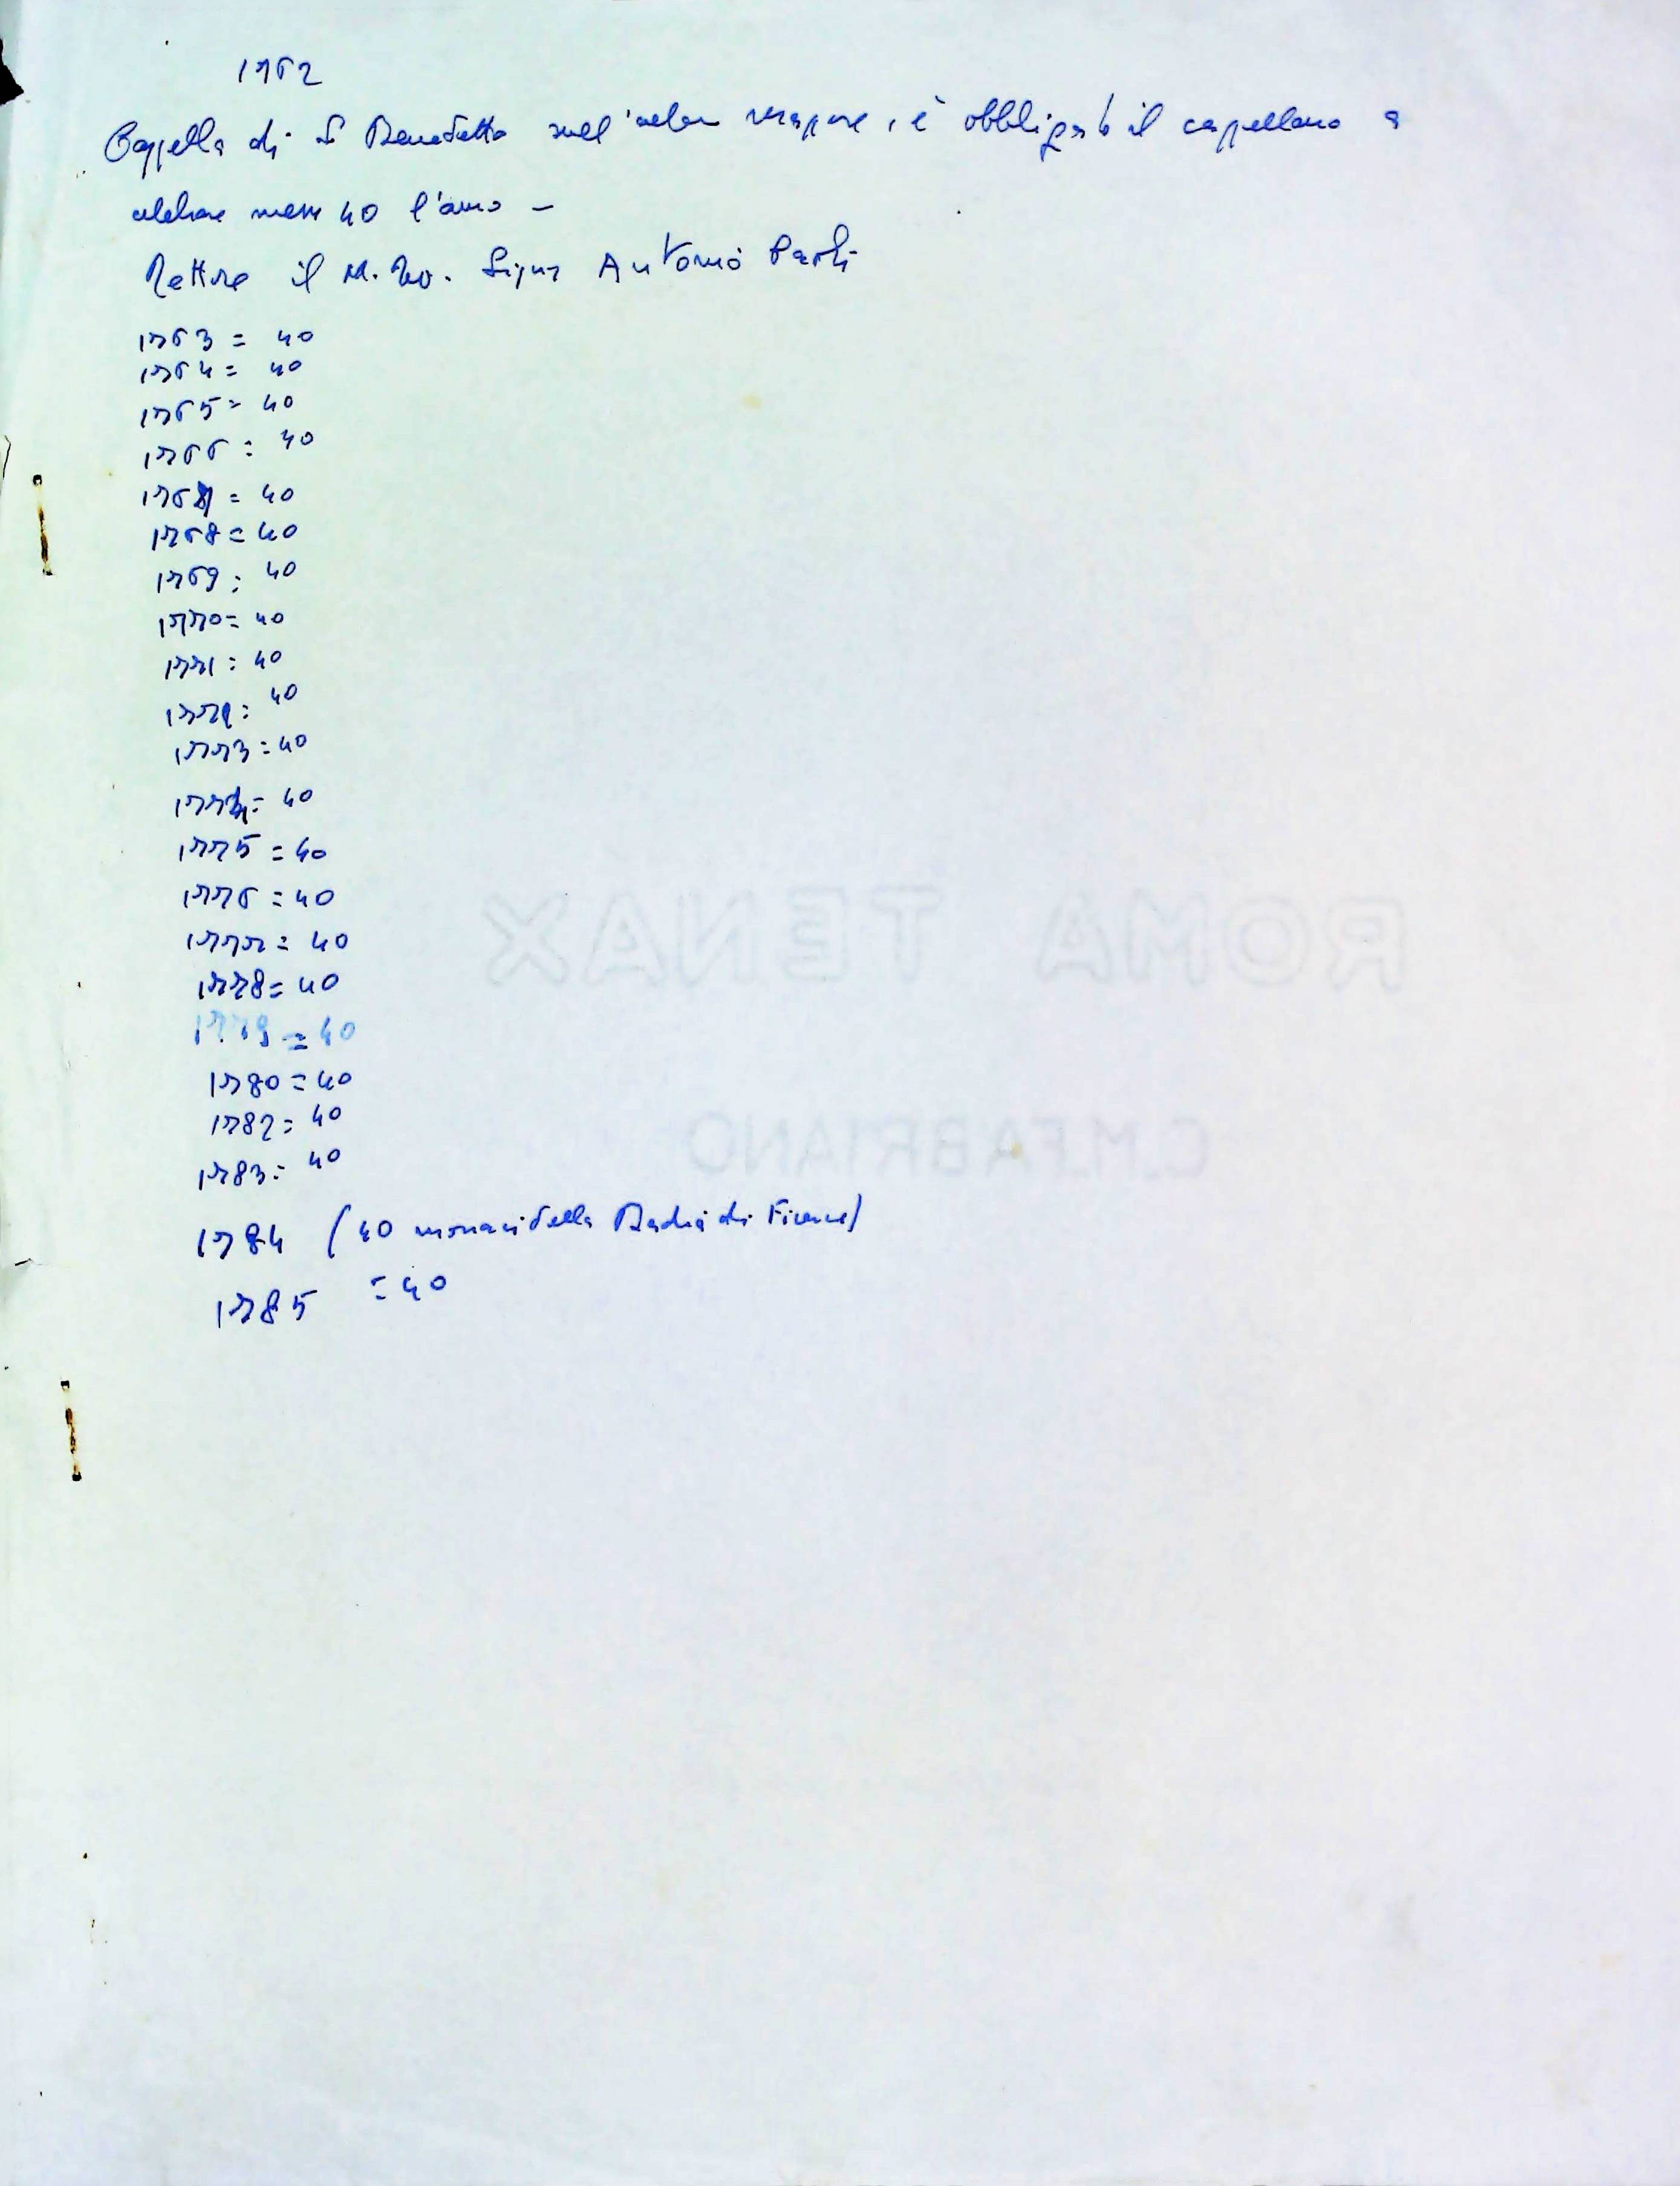 1762
Cappella di S Benedetto sull'altar maggiore, è obbligato il cappellano a
celebrare messe 40 l'anno -
Rettore il M. Rev. Signor Antonio Paoli
1763 = 40
1764 = 40
1765 = 40
1766 = 40
1767 = 40
1768 = 40
1769 = 40
1770 = 40
1771 = 40
1772 = 40
1773 = 40
1774 = 40
1775 = 40
1776 = 40
1777 = 40
1778 = 40
1779 = 40
1780 = 40
1782 = 40
1783 = 40
1784 (40 monaci della Badia di Firenze)
1785 = 40
ROMA TENAX
C.M.FABRIANO